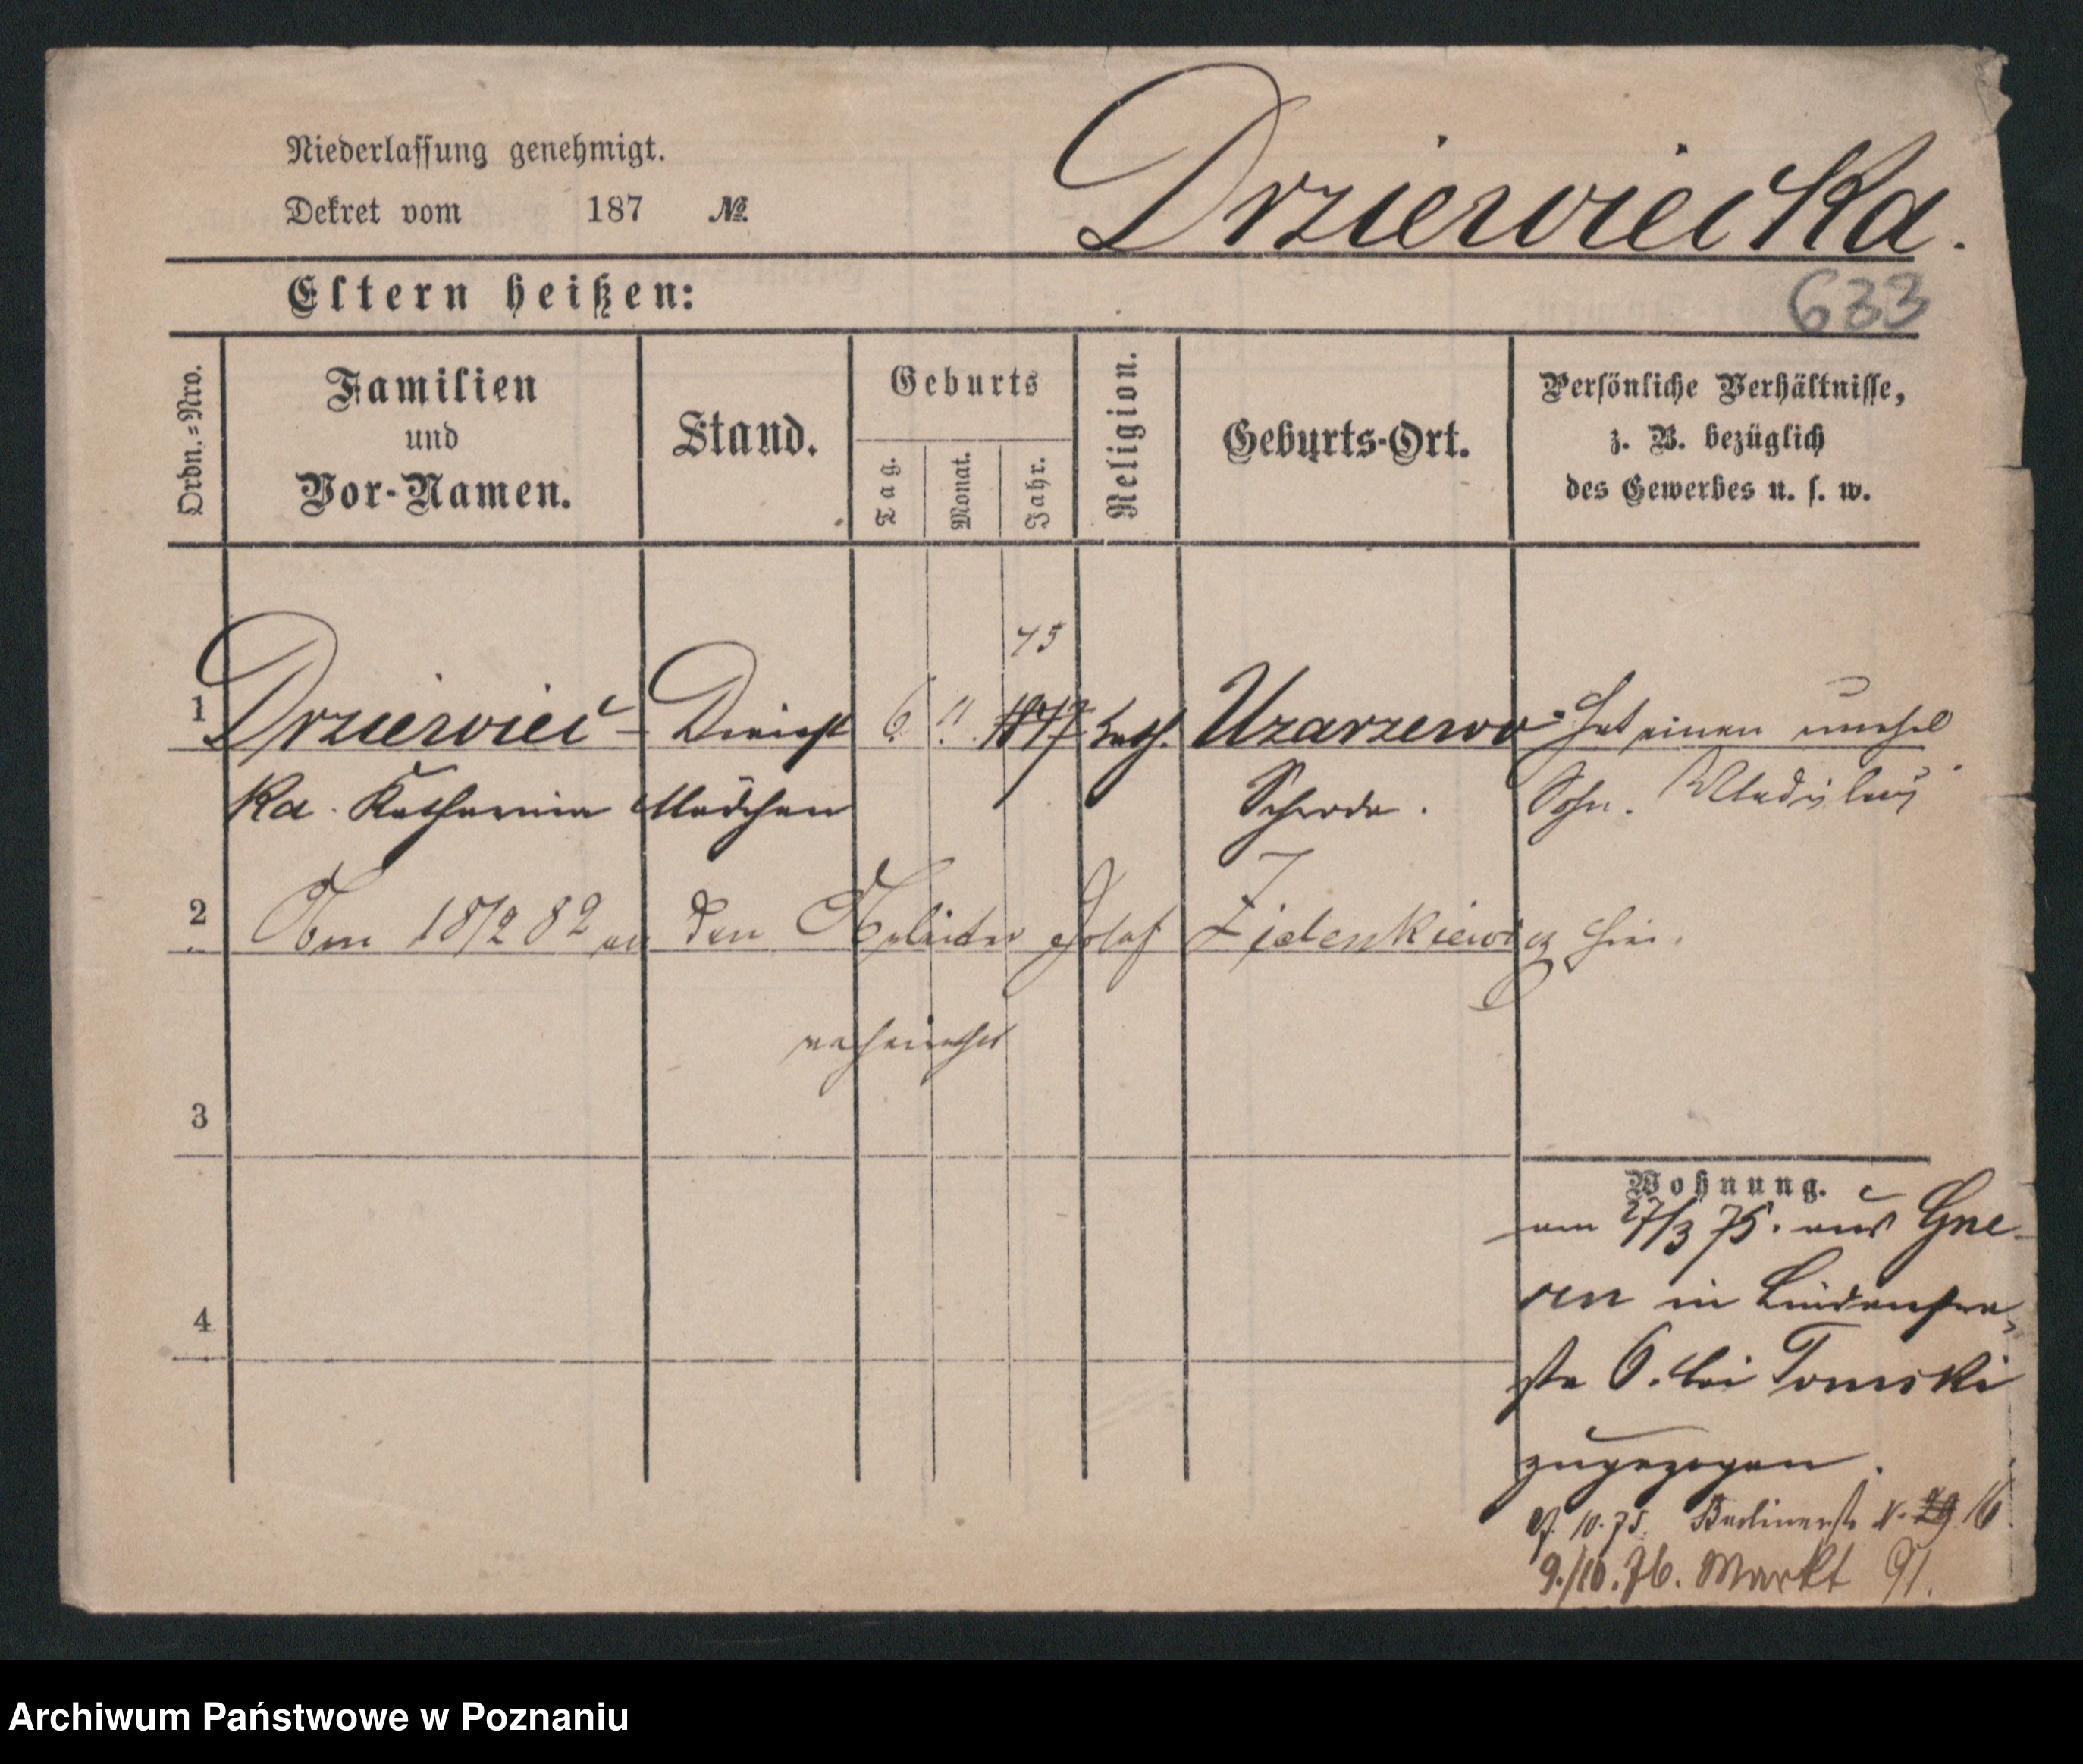 Niederlassung genehmigt.
Dekret vom 187 №
Drzewiecka.
Eltern heißen:
633
Ordn.=Nro.
Familien
und
Vor-Namen.
Stand.
Geburts
Tag.
Monat.
Jahr.
Religion.
Geburts-Ort.
Persönliche Verhältnisse,
z. B. bezüglich
des Gewerbes u. s. w.
45
1 Drziewiec- Dienst 6. 11. 1847 kath. Uzarzewo hat einen unehel
ka. Katharina Mädchen Schroda. Sohn. Wladislaus
2 Am 18/2 82 an den Arbeiter Josef Zidenkiewicz hier.
verheirathet
3
4
Wohnung.
am 27/3 75. aus Gne-
sen in Lindenstra
ße 6. bei Tomski
zugezogen.
10.75. Berlinerstr N. 29 16.
9./10.76. Markt 91.
Archiwum Państwowe w Poznaniu